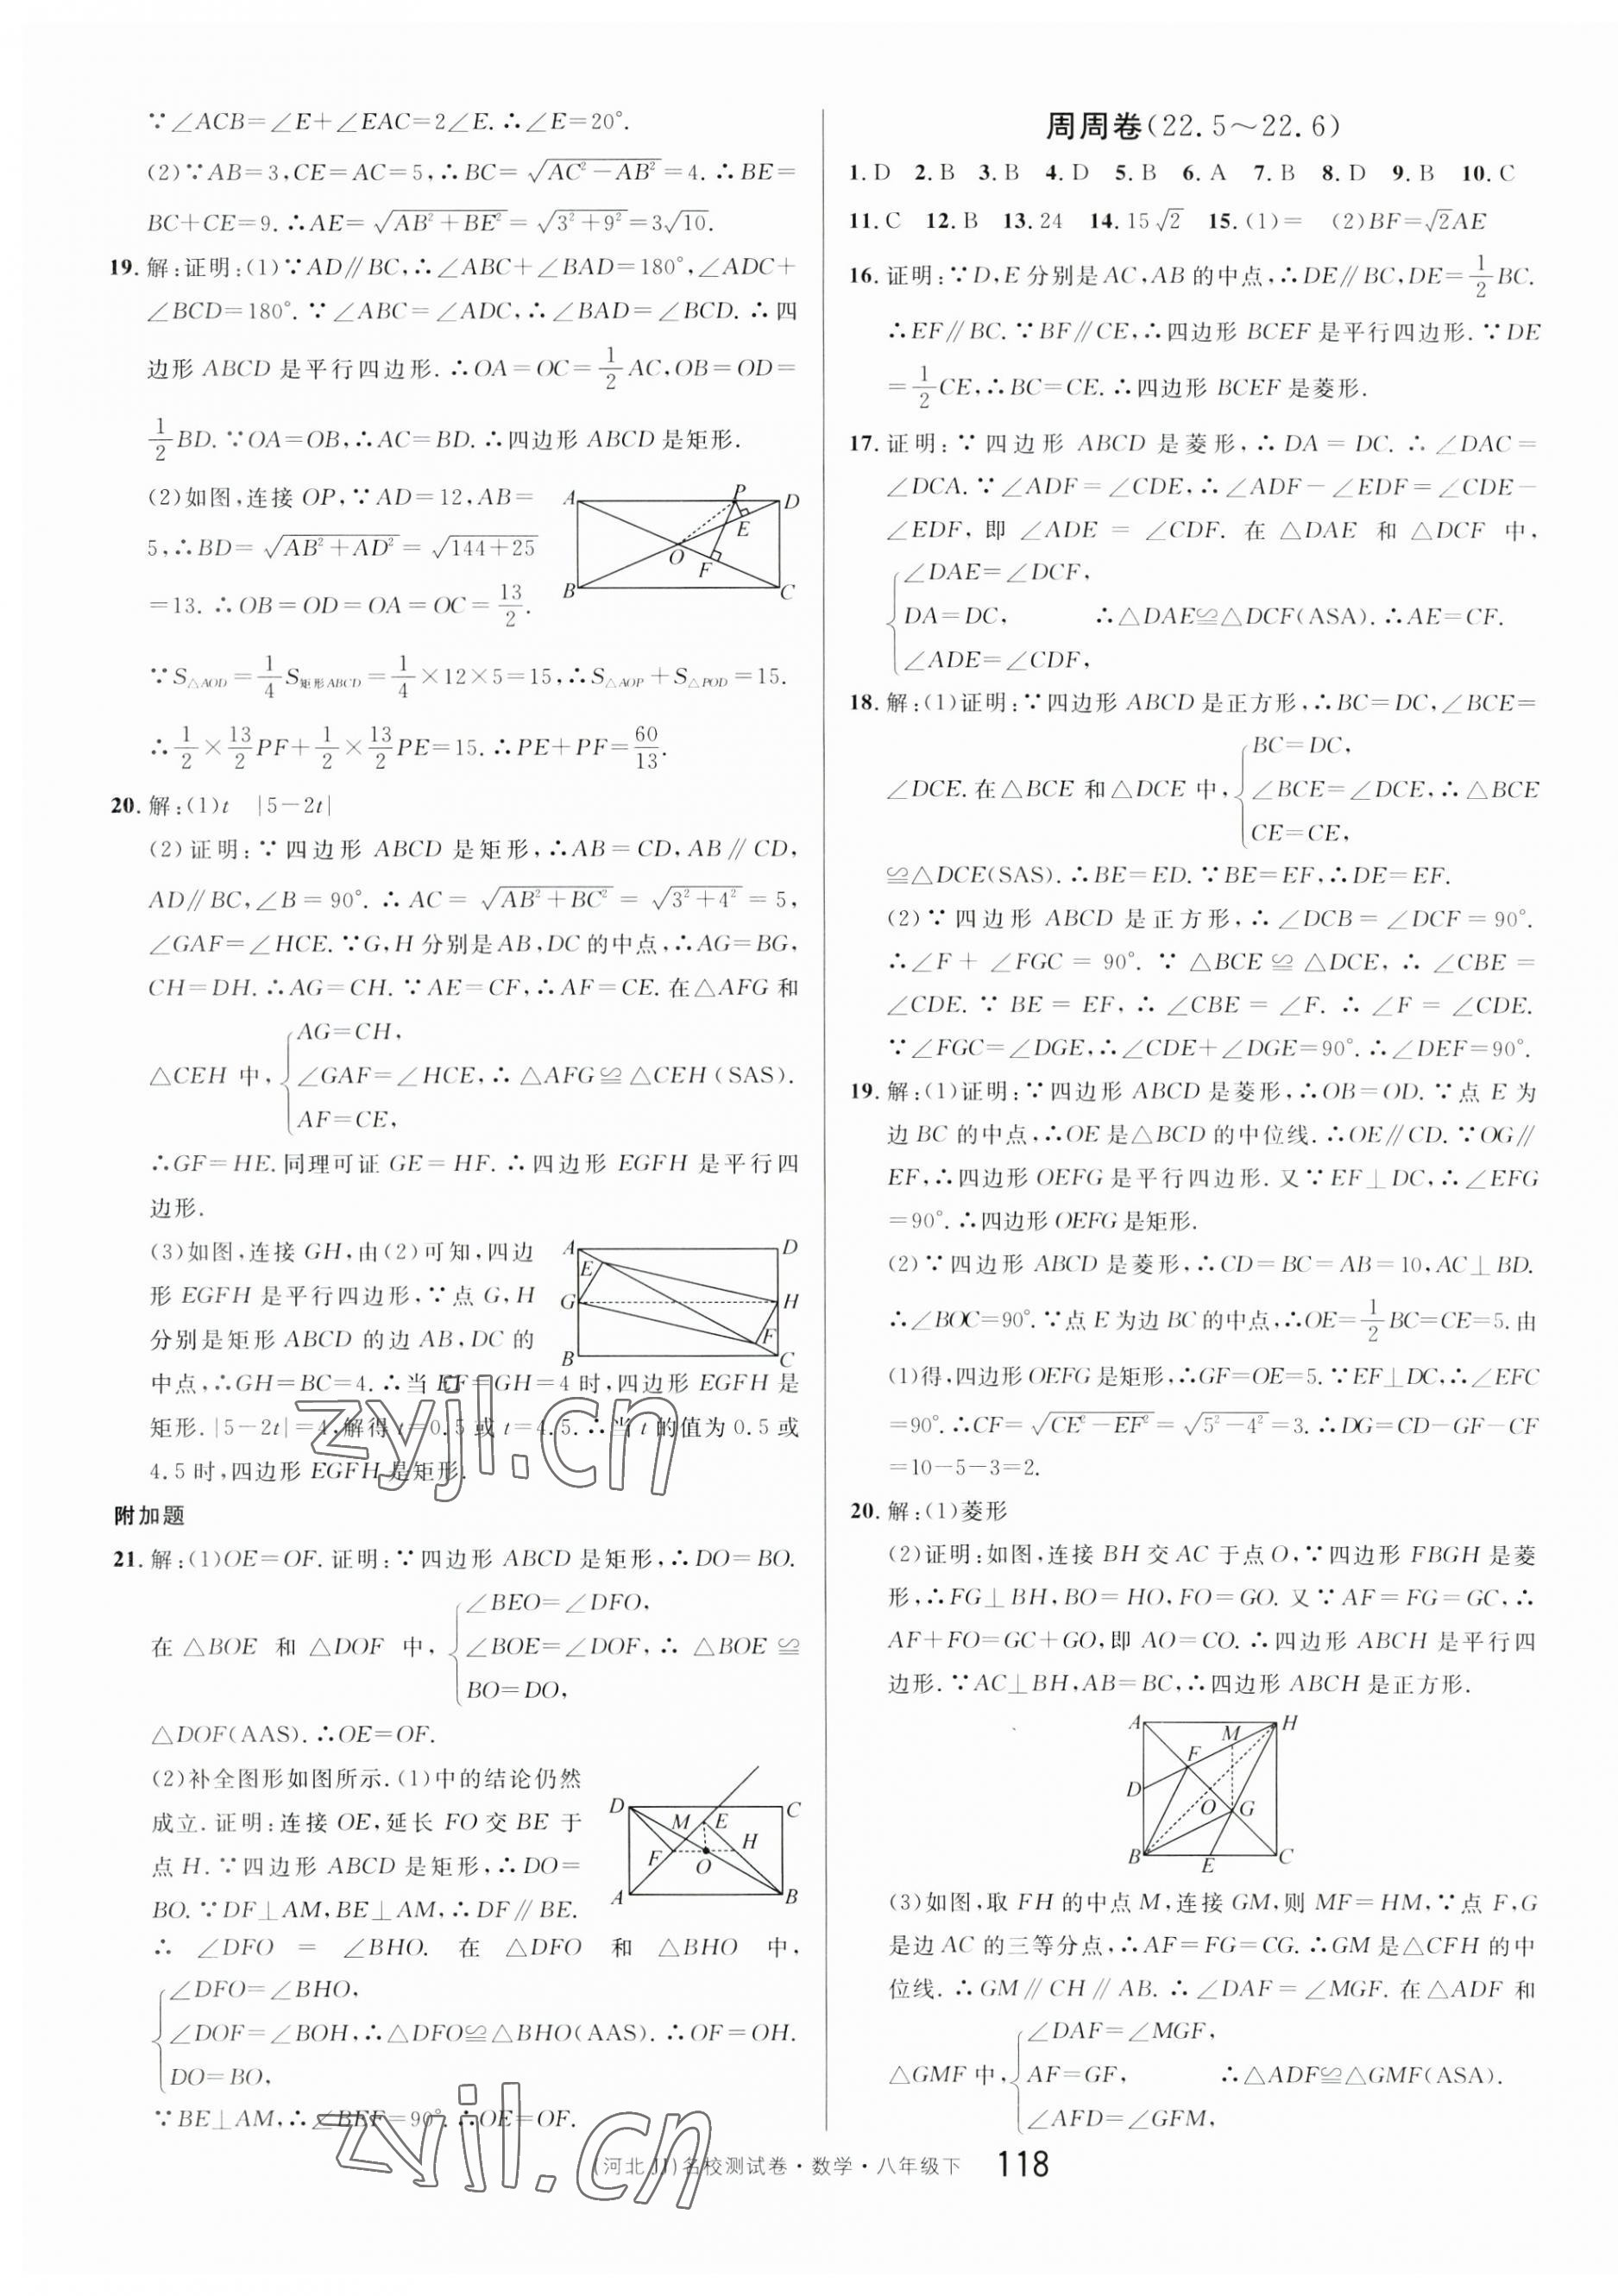 ∵∠ACB=∠E+∠EAC=2∠E. ∴∠E=20°.
(2)∵AB=3,CE=AC=5,∴BC=√(AC²-AB²)=4. ∴BE=
BC+CE=9. ∴AE=√(AB²+BE²)=√(3²+9²)=3√10.
19. 解:证明:(1)∵AD∥BC,∴∠ABC+∠BAD=180°,∠ADC+
∠BCD=180°. ∵∠ABC=∠ADC,∴∠BAD=∠BCD. ∴四
边形 ABCD 是平行四边形. ∴OA=OC=1/2AC,OB=OD=
1/2BD. ∵OA=OB,∴AC=BD. ∴四边形 ABCD 是矩形.
(2)如图,连接 OP,∵AD=12,AB=
5,∴BD=√(AB²+AD²)=√(144+25)
=13. ∴OB=OD=OA=OC=13/2.
A P D E O F B C
∵S△AOD=1/4S矩形ABCD=1/4×12×5=15,∴S△AOP+S△POD=15.
∴1/2×13/2PF+1/2×13/2PE=15. ∴PE+PF=60/13.
20. 解:(1)t |5-2t|
(2)证明:∵四边形 ABCD 是矩形,∴AB=CD,AB∥CD,
AD∥BC,∠B=90°. ∴AC=√(AB²+BC²)=√(3²+4²)=5,
∠GAF=∠HCE. ∵G,H 分别是 AB,DC 的中点,∴AG=BG,
CH=DH. ∴AG=CH. ∵AE=CF,∴AF=CE. 在△AFG 和
AG=CH,
△CEH 中,{∠GAF=∠HCE,∴△AFG≌△CEH(SAS).
AF=CE,
∴GF=HE. 同理可证 GE=HF. ∴四边形 EGFH 是平行四
边形.
(3)如图,连接 GH,由(2)可知,四边
形 EGFH 是平行四边形,∵点 G,H
分别是矩形 ABCD 的边 AB,DC 的
A D E G H F B C
中点,∴GH=BC=4. ∴当 EF=GH=4 时,四边形 EGFH 是
矩形. |5-2t|=4,解得 t=0.5 或 t=4.5. ∴当 t 的值为 0.5 或
4.5 时,四边形 EGFH 是矩形.
附加题
21. 解:(1)OE=OF. 证明:∵四边形 ABCD 是矩形,∴DO=BO.
∠BEO=∠DFO,
在△BOE 和△DOF 中,{∠BOE=∠DOF,∴△BOE≌
BO=DO,
△DOF(AAS). ∴OE=OF.
(2)补全图形如图所示. (1)中的结论仍然
成立. 证明:连接 OE,延长 FO 交 BE 于
点 H. ∵四边形 ABCD 是矩形,∴DO=
BO. ∵DF⊥AM,BE⊥AM,∴DF∥BE.
D C M E H F O A B
∴∠DFO=∠BHO. 在△DFO 和△BHO 中,
∠DFO=∠BHO,
{∠DOF=∠BOH,∴△DFO≌△BHO(AAS). ∴OF=OH.
DO=BO,
∵BE⊥AM,∴∠BEF=90°. ∴OE=OF.
周周卷(22.5～22.6)
1. D 2. B 3. B 4. D 5. B 6. A 7. B 8. D 9. B 10. C
11. C 12. B 13. 24 14. 15√2 15. (1)= (2)BF=√2AE
16. 证明:∵D,E 分别是 AC,AB 的中点,∴DE∥BC,DE=1/2BC.
∴EF∥BC. ∵BF∥CE,∴四边形 BCEF 是平行四边形. ∵DE
=1/2CE,∴BC=CE. ∴四边形 BCEF 是菱形.
17. 证明:∵四边形 ABCD 是菱形,∴DA=DC. ∴∠DAC=
∠DCA. ∵∠ADF=∠CDE,∴∠ADF-∠EDF=∠CDE-
∠EDF,即∠ADE=∠CDF. 在△DAE 和△DCF 中,
∠DAE=∠DCF,
{DA=DC, ∴△DAE≌△DCF(ASA). ∴AE=CF.
∠ADE=∠CDF,
18. 解:(1)证明:∵四边形 ABCD 是正方形,∴BC=DC,∠BCE=
BC=DC,
∠DCE. 在△BCE 和△DCE 中,{∠BCE=∠DCE,∴△BCE
CE=CE,
≌△DCE(SAS). ∴BE=ED. ∵BE=EF,∴DE=EF.
(2)∵四边形 ABCD 是正方形,∴∠DCB=∠DCF=90°.
∴∠F+∠FGC=90°. ∵△BCE≌△DCE,∴∠CBE=
∠CDE. ∵BE=EF,∴∠CBE=∠F. ∴∠F=∠CDE.
∵∠FGC=∠DGE,∴∠CDE+∠DGE=90°. ∴∠DEF=90°.
19. 解:(1)证明:∵四边形 ABCD 是菱形,∴OB=OD. ∵点 E 为
边 BC 的中点,∴OE 是△BCD 的中位线. ∴OE∥CD. ∵OG∥
EF,∴四边形 OEFG 是平行四边形. 又∵EF⊥DC,∴∠EFG
=90°. ∴四边形 OEFG 是矩形.
(2)∵四边形 ABCD 是菱形,∴CD=BC=AB=10,AC⊥BD.
∴∠BOC=90°. ∵点 E 为边 BC 的中点,∴OE=1/2BC=CE=5. 由
(1)得,四边形 OEFG 是矩形,∴GF=OE=5. ∵EF⊥DC,∴∠EFC
=90°. ∴CF=√(CE²-EF²)=√(5²-4²)=3. ∴DG=CD-GF-CF
=10-5-3=2.
20. 解:(1)菱形
(2)证明:如图,连接 BH 交 AC 于点 O,∵四边形 FBGH 是菱
形,∴FG⊥BH,BO=HO,FO=GO. 又∵AF=FG=GC,∴
AF+FO=GC+GO,即 AO=CO. ∴四边形 ABCH 是平行四
边形. ∵AC⊥BH,AB=BC,∴四边形 ABCH 是正方形.
A H M F D O G B E C
(3)如图,取 FH 的中点 M,连接 GM,则 MF=HM,∵点 F,G
是边 AC 的三等分点,∴AF=FG=CG. ∴GM 是△CFH 的中
位线. ∴GM∥CH∥AB. ∴∠DAF=∠MGF. 在△ADF 和
∠DAF=∠MGF,
△GMF 中,{AF=GF, ∴△ADF≌△GMF(ASA).
∠AFD=∠GFM,
(河北JJ)名校测试卷·数学·八年级下 118
zyjl.cn
zyjl.cn